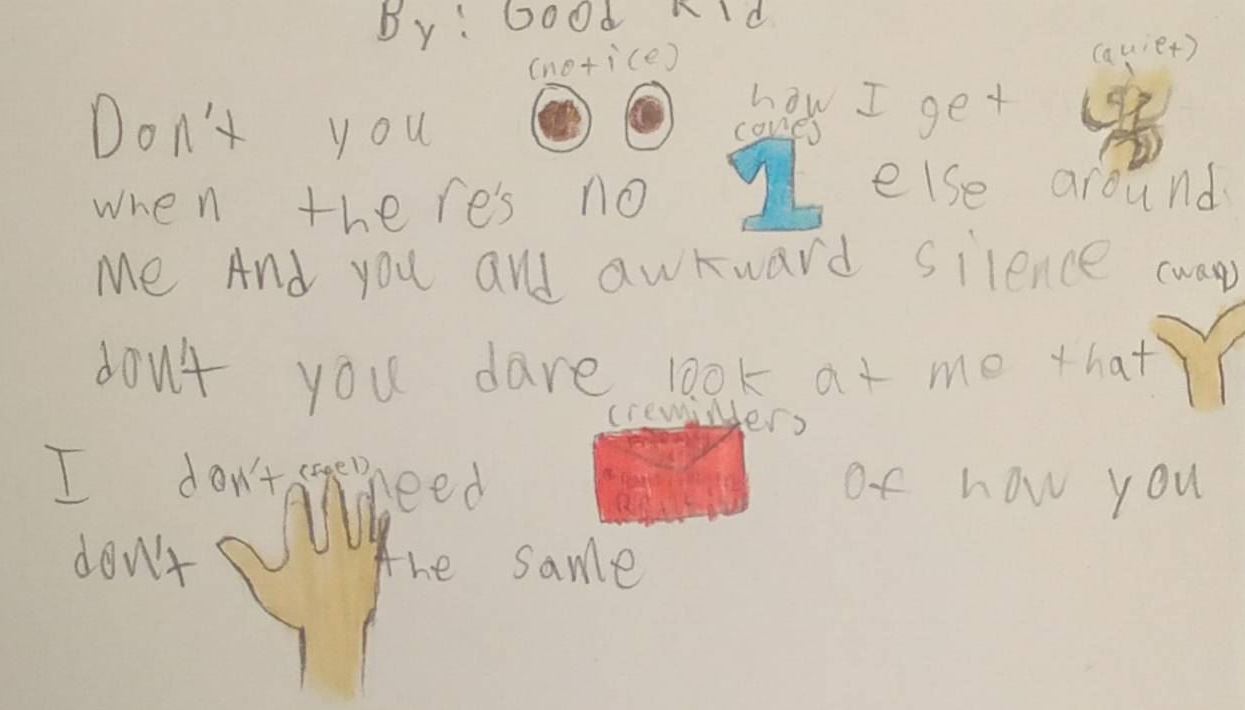 By: Good Kid
(notice) (quiet)
Don't you how I get
(ones)
when there's no 1 else around
Me And you and awkward silence (way)
don't you dare look at me that
(reminders)
I don't need of how you
(feel)
don't the same